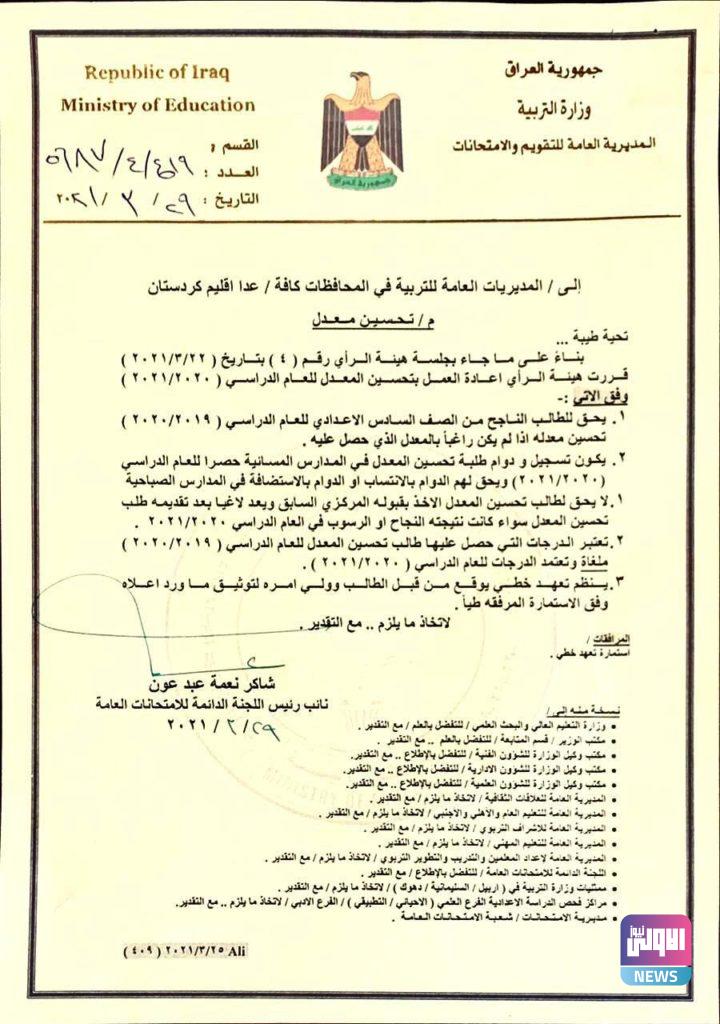 Republic of Iraq
Ministry of Education
جمهورية العراق
وزارة التربية
المديرية العامة للتقويم والامتحانات
القسم :
العدد :
التاريخ : ٢٠٢١ / ٣ / ٢٩
جمهورية العراق
إلى / المديريات العامة للتربية في المحافظات كافة / عدا اقليم كردستان
م / تحسين معدل
تحية طيبة ...
بناءً على ما جاء بجلسة هيئة الرأي رقم ( ٤ ) بتاريخ ( ٢٠٢١/٣/٢٢ )
قررت هيئة الرأي اعادة العمل بتحسين المعدل للعام الدراسي ( ٢٠٢١/٢٠٢٠ )
وفق الاتي :-
١. يحق للطالب الناجح من الصف السادس الاعدادي للعام الدراسي ( ٢٠٢٠/٢٠١٩ )
تحسين معدله اذا لم يكن راغباً بالمعدل الذي حصل عليه .
٢. يكون تسجيل و دوام طلبة تحسين المعدل في المدارس المسائية حصرا للعام الدراسي
(٢٠٢١/٢٠٢٠) ويحق لهم الدوام بالانتساب او الدوام بالاستضافة في المدارس الصباحية
١. لا يحق لطالب تحسين المعدل الاخذ بقبوله المركزي السابق ويعد لاغيا بعد تقديمه طلب
تحسين المعدل سواء كانت نتيجته النجاح او الرسوب في العام الدراسي ٢٠٢١/٢٠٢٠ .
٢. تعتبر الدرجات التي حصل عليها طالب تحسين المعدل للعام الدراسي ( ٢٠٢٠/٢٠١٩ )
ملغاة وتعتمد الدرجات للعام الدراسي ( ٢٠٢١/٢٠٢٠ ) .
٣. ينظم تعهد خطي يوقع من قبل الطالب وولي امره لتوثيق ما ورد اعلاه
وفق الاستمارة المرفقه طياً .
لاتخاذ ما يلزم .. مع التقدير .
المرافقات /
استمارة تعهد خطي .
شاكر نعمة عبد عون
نائب رئيس اللجنة الدائمة للامتحانات العامة
٢٠٢١ / ٣ / ٢٩
نسخة منه إلى /
• وزارة التعليم العالي والبحث العلمي / للتفضل بالعلم / مع التقدير .
• مكتب الوزير / قسم المتابعة / للتفضل بالعلم .. مع التقدير .
• مكتب وكيل الوزارة للشؤون الفنية / للتفضل بالإطلاع .. مع التقدير.
• مكتب وكيل الوزارة للشؤون الادارية / للتفضل بالإطلاع .. مع التقدير.
• مكتب وكيل الوزارة للشؤون العلمية / للتفضل بالإطلاع .. مع التقدير.
• المديرية العامة للعلاقات الثقافية / لاتخاذ ما يلزم / مع التقدير .
• المديرية العامة للتعليم العام والأهلي والاجنبي / لاتخاذ ما يلزم / مع التقدير .
• المديرية العامة للاشراف التربوي / لاتخاذ ما يلزم / مع التقدير .
• المديرية العامة للتعليم المهني / لاتخاذ ما يلزم / مع التقدير .
• المديرية العامة لاعداد المعلمين والتدريب والتطوير التربوي / لاتخاذ ما يلزم / مع التقدير .
• اللجنة الدائمة للامتحانات العامة / للتفضل بالإطلاع / مع التقدير .
• ممثليات وزارة التربية في ( اربيل / السليمانية / دهوك ) / لاتخاذ ما يلزم / مع التقدير .
• مراكز فحص الدراسة الاعدادية الفرع العلمي ( الاحيائي / التطبيقي ) / الفرع الادبي / لاتخاذ ما يلزم .. مع التقدير.
• مديرية الامتحانات / شعبة الامتحانات العامة .
( ٤٠٩ ) ٢٠٢١/٣/٢٥ Ali
الاولى نيوز
NEWS